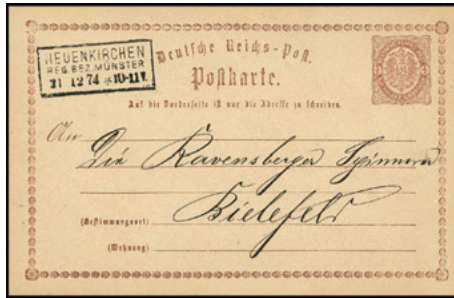 NEUENKIRCHEN
REG.BEZ.MÜNSTER
31 12 74 *10-11V.
Deutsche Reichs-Post.
Postkarte.
Auf die Vorderseite ist nur die Adresse zu schreiben.
An
Die Ravensberger Spinnerei
Bielefeld
(Bestimmungsort)
(Wohnung)